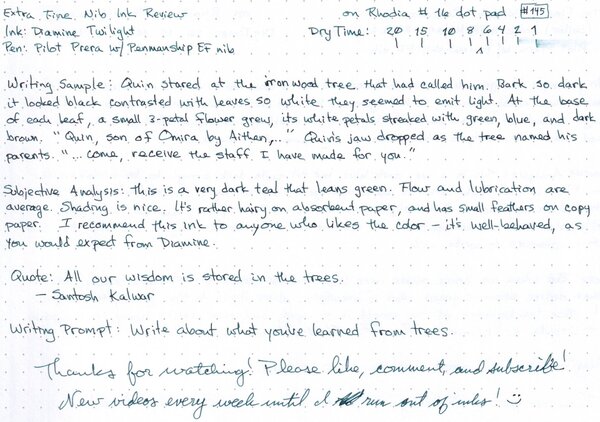 Extra Fine Nib Ink Review on Rhodia #16 dot pad #145
Ink: Diamine Twilight Dry Time: 20 15 10 8 6 4 2 1
Pen: Pilot Prera w/ Penmanship EF nib
Writing Sample: Quin stared at the ironwood tree that had called him. Bark so dark
it looked black contrasted with leaves so white they seemed to emit light. At the base
of each leaf, a small 3-petal flower grew, its white petals streaked with green, blue, and dark
brown. "Quin, son of Omira by Aithen,..." Quin's jaw dropped as the tree named his
parents. "... come, receive the staff I have made for you."
Subjective Analysis: this is a very dark teal that leans green. Flow and lubrication are
average. Shading is nice. It's rather hairy on absorbent paper, and has small feathers on copy
paper. I recommend this ink to anyone who likes the color – it's well-behaved, as
you would expect from Diamine.
Quote: All our wisdom is stored in the trees.
– Santosh Kalwar
Writing Prompt: Write about what you've learned from trees.
Thanks for watching! Please like, comment, and subscribe!
New videos every week until I run out of inks!